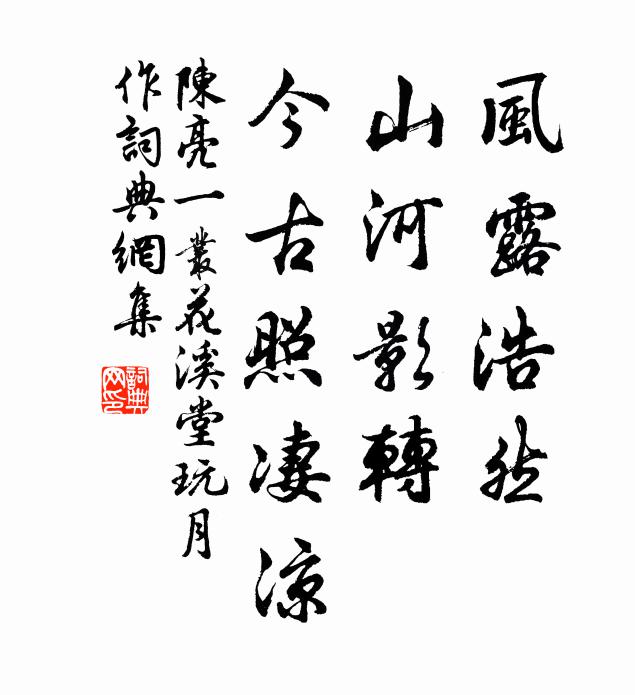 風露浩然
山河影轉
今古照凄涼
陳亮一叢花溪堂玩月
作詞典網集
詞典网印